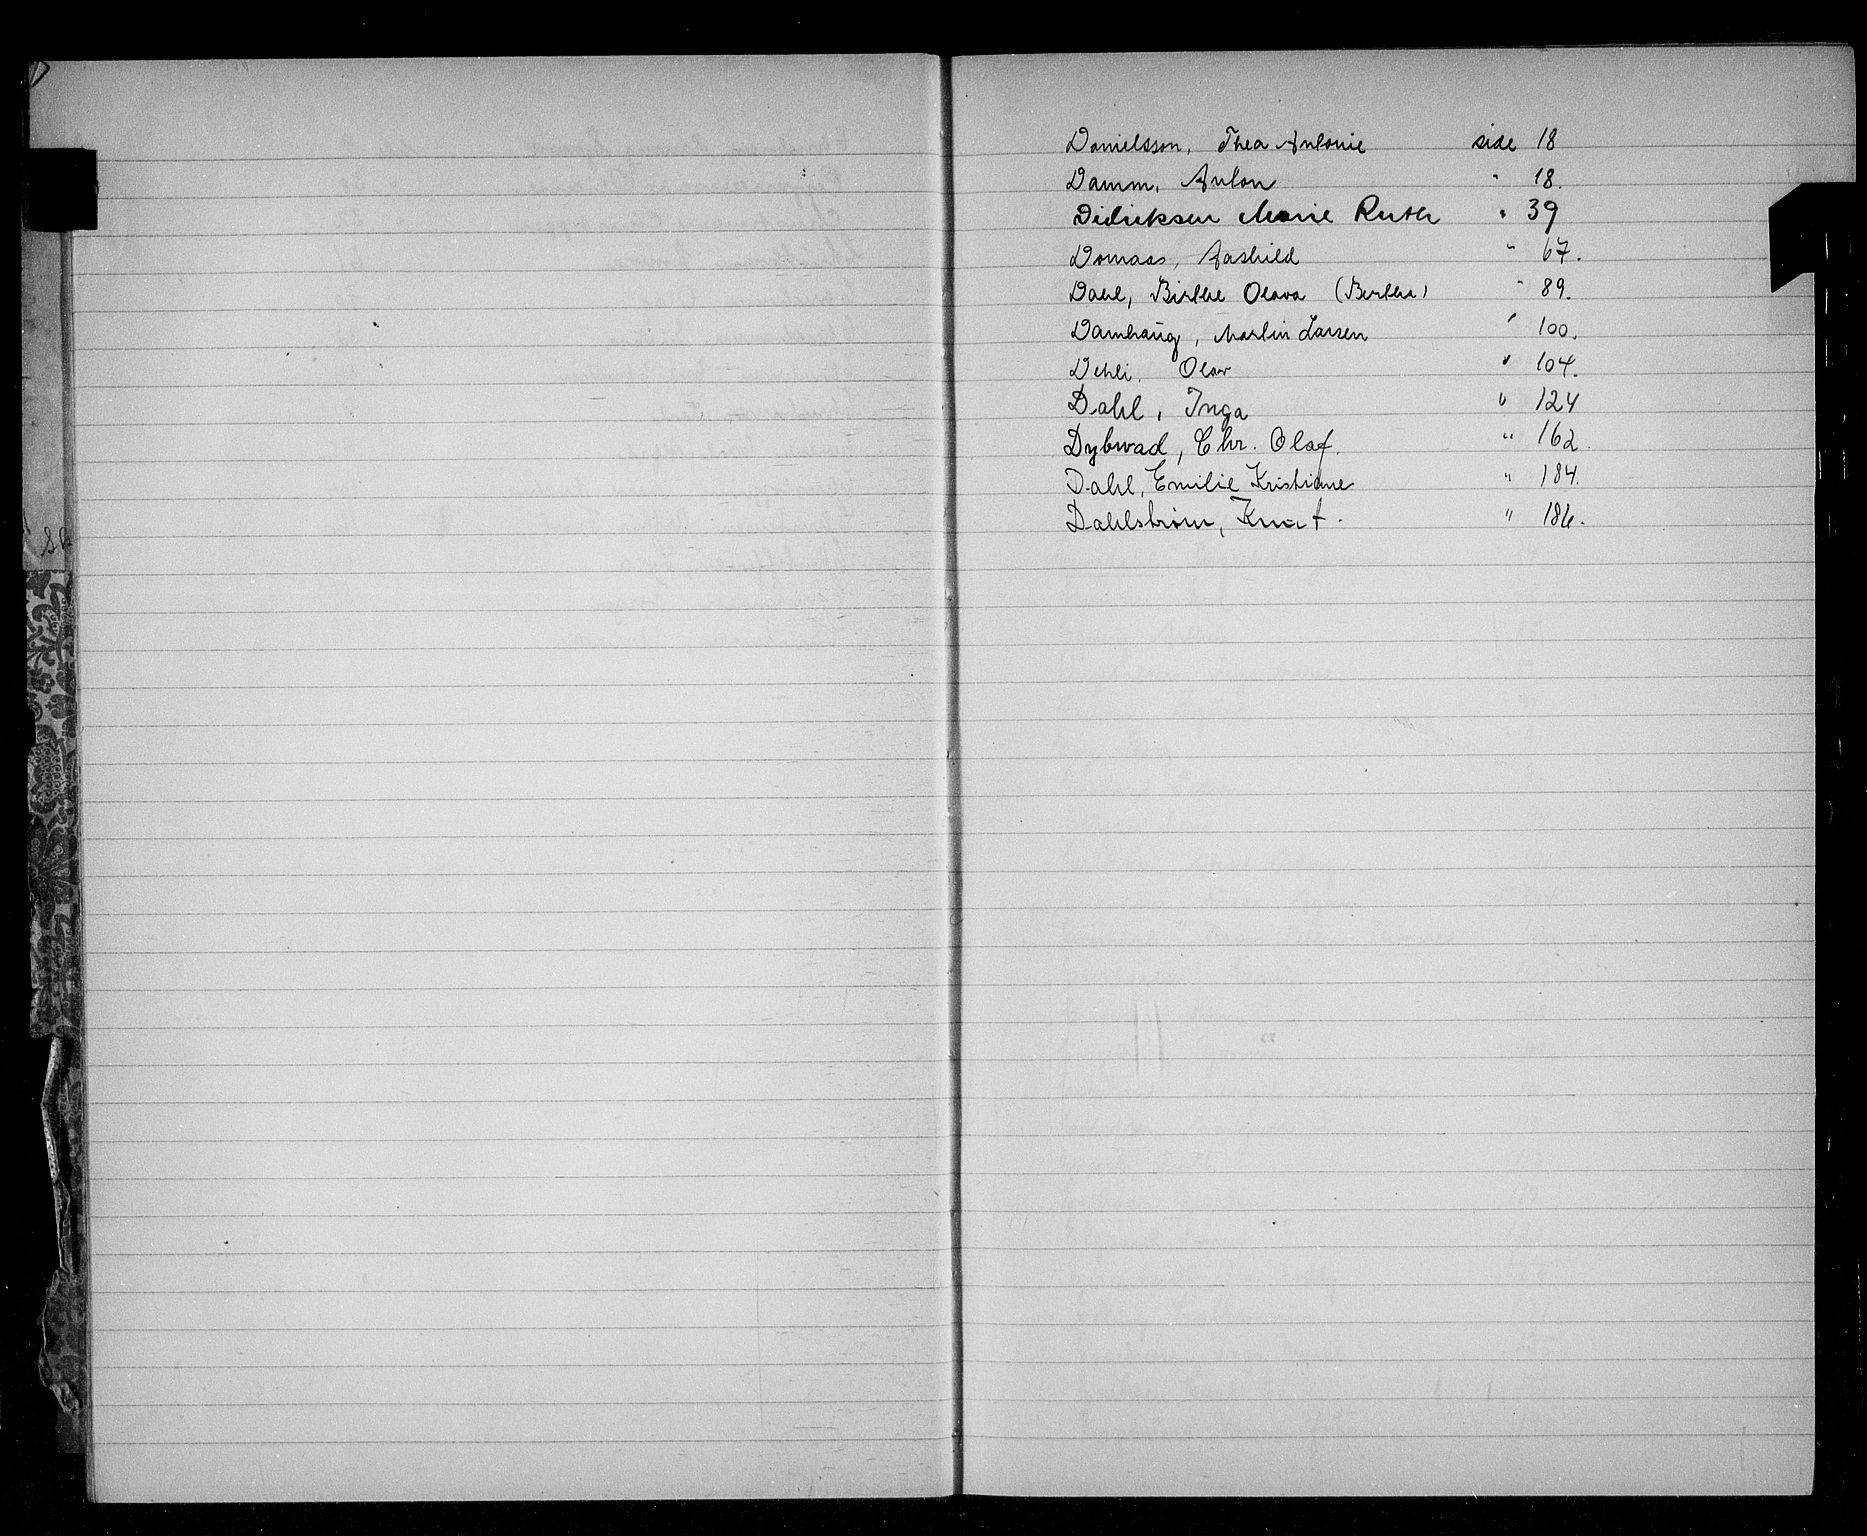 Danielsson, Thea Antonie side 18
Damm, Anton " 18.
Didriksen Marie Ruth " 39
Domaas, Aashild " 67.
Dahl, Birthe Olava (Berthe) " 89.
Damhaug, Martin Larsen " 100.
Dehli. Olav " 104.
Dahl, Inga " 124
Dybwad, Chr. Olaf. " 162.
Dahl, Emilie Kristiane " 184.
Dahlstrøm, Knut. " 186.